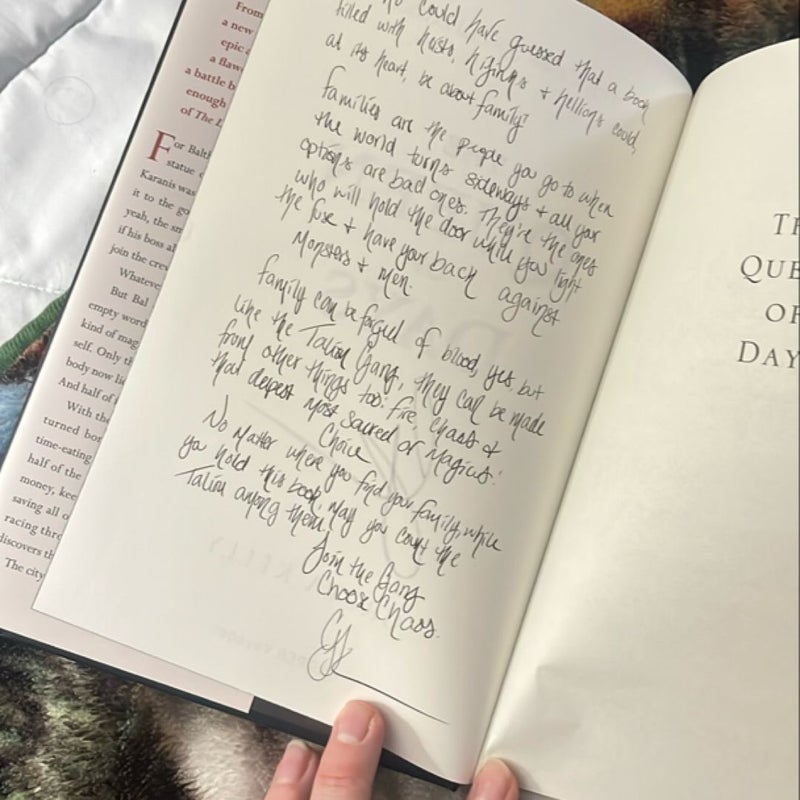 From
a new
epic
a flaw
a battle b
enough
of The L
For Balth
statue
Karanis was
it to the go
yeah, the sm
if his boss al
join the crew
Whateve
But Bal
empty word
kind of mag
self. Only th
body now li
And half of
With the
turned bor
time-eating
half of the
money, kee
saving all o
racing thro
discovers th
The city
could have guessed that a book
filled with heists, highjinks + hellions could,
at its heart, be about family?
families are the people you go to when
the world turns sideways + all your
options are bad ones. They're the ones
who will hold the door while you light
the fuse + have your back against
Monsters + men.
family can be forged of blood, yes, but
like the Talion Gang, they can be made
from other things too: fire, chaos +
that deepest most sacred of magics:
Choice
No matter where you find your family, while
you hold this book, may you count the
Talion among them.
Join the Gang
Choose Chaos.
TH
QUE
OF
DAY